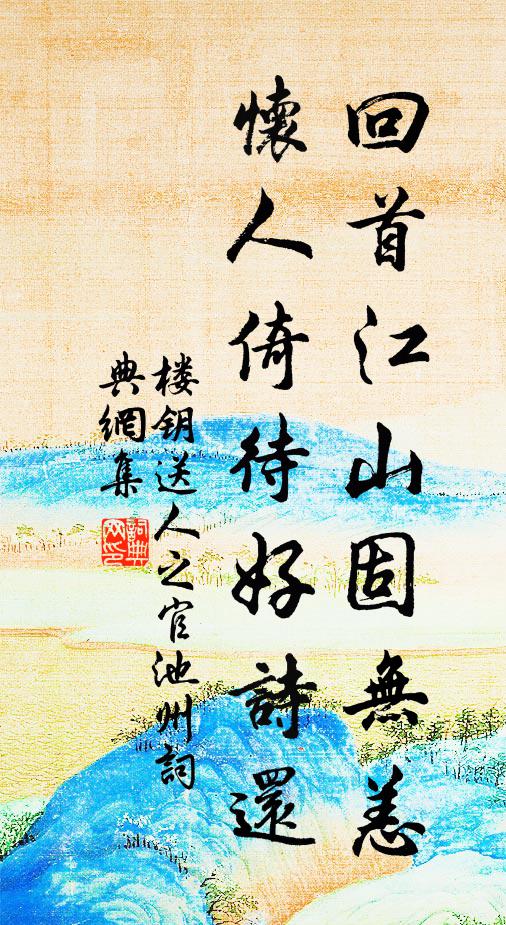 回首江山固無恙
懷人倚待好詩還
楼钥送人之官池州詞
典網集
詞典网印